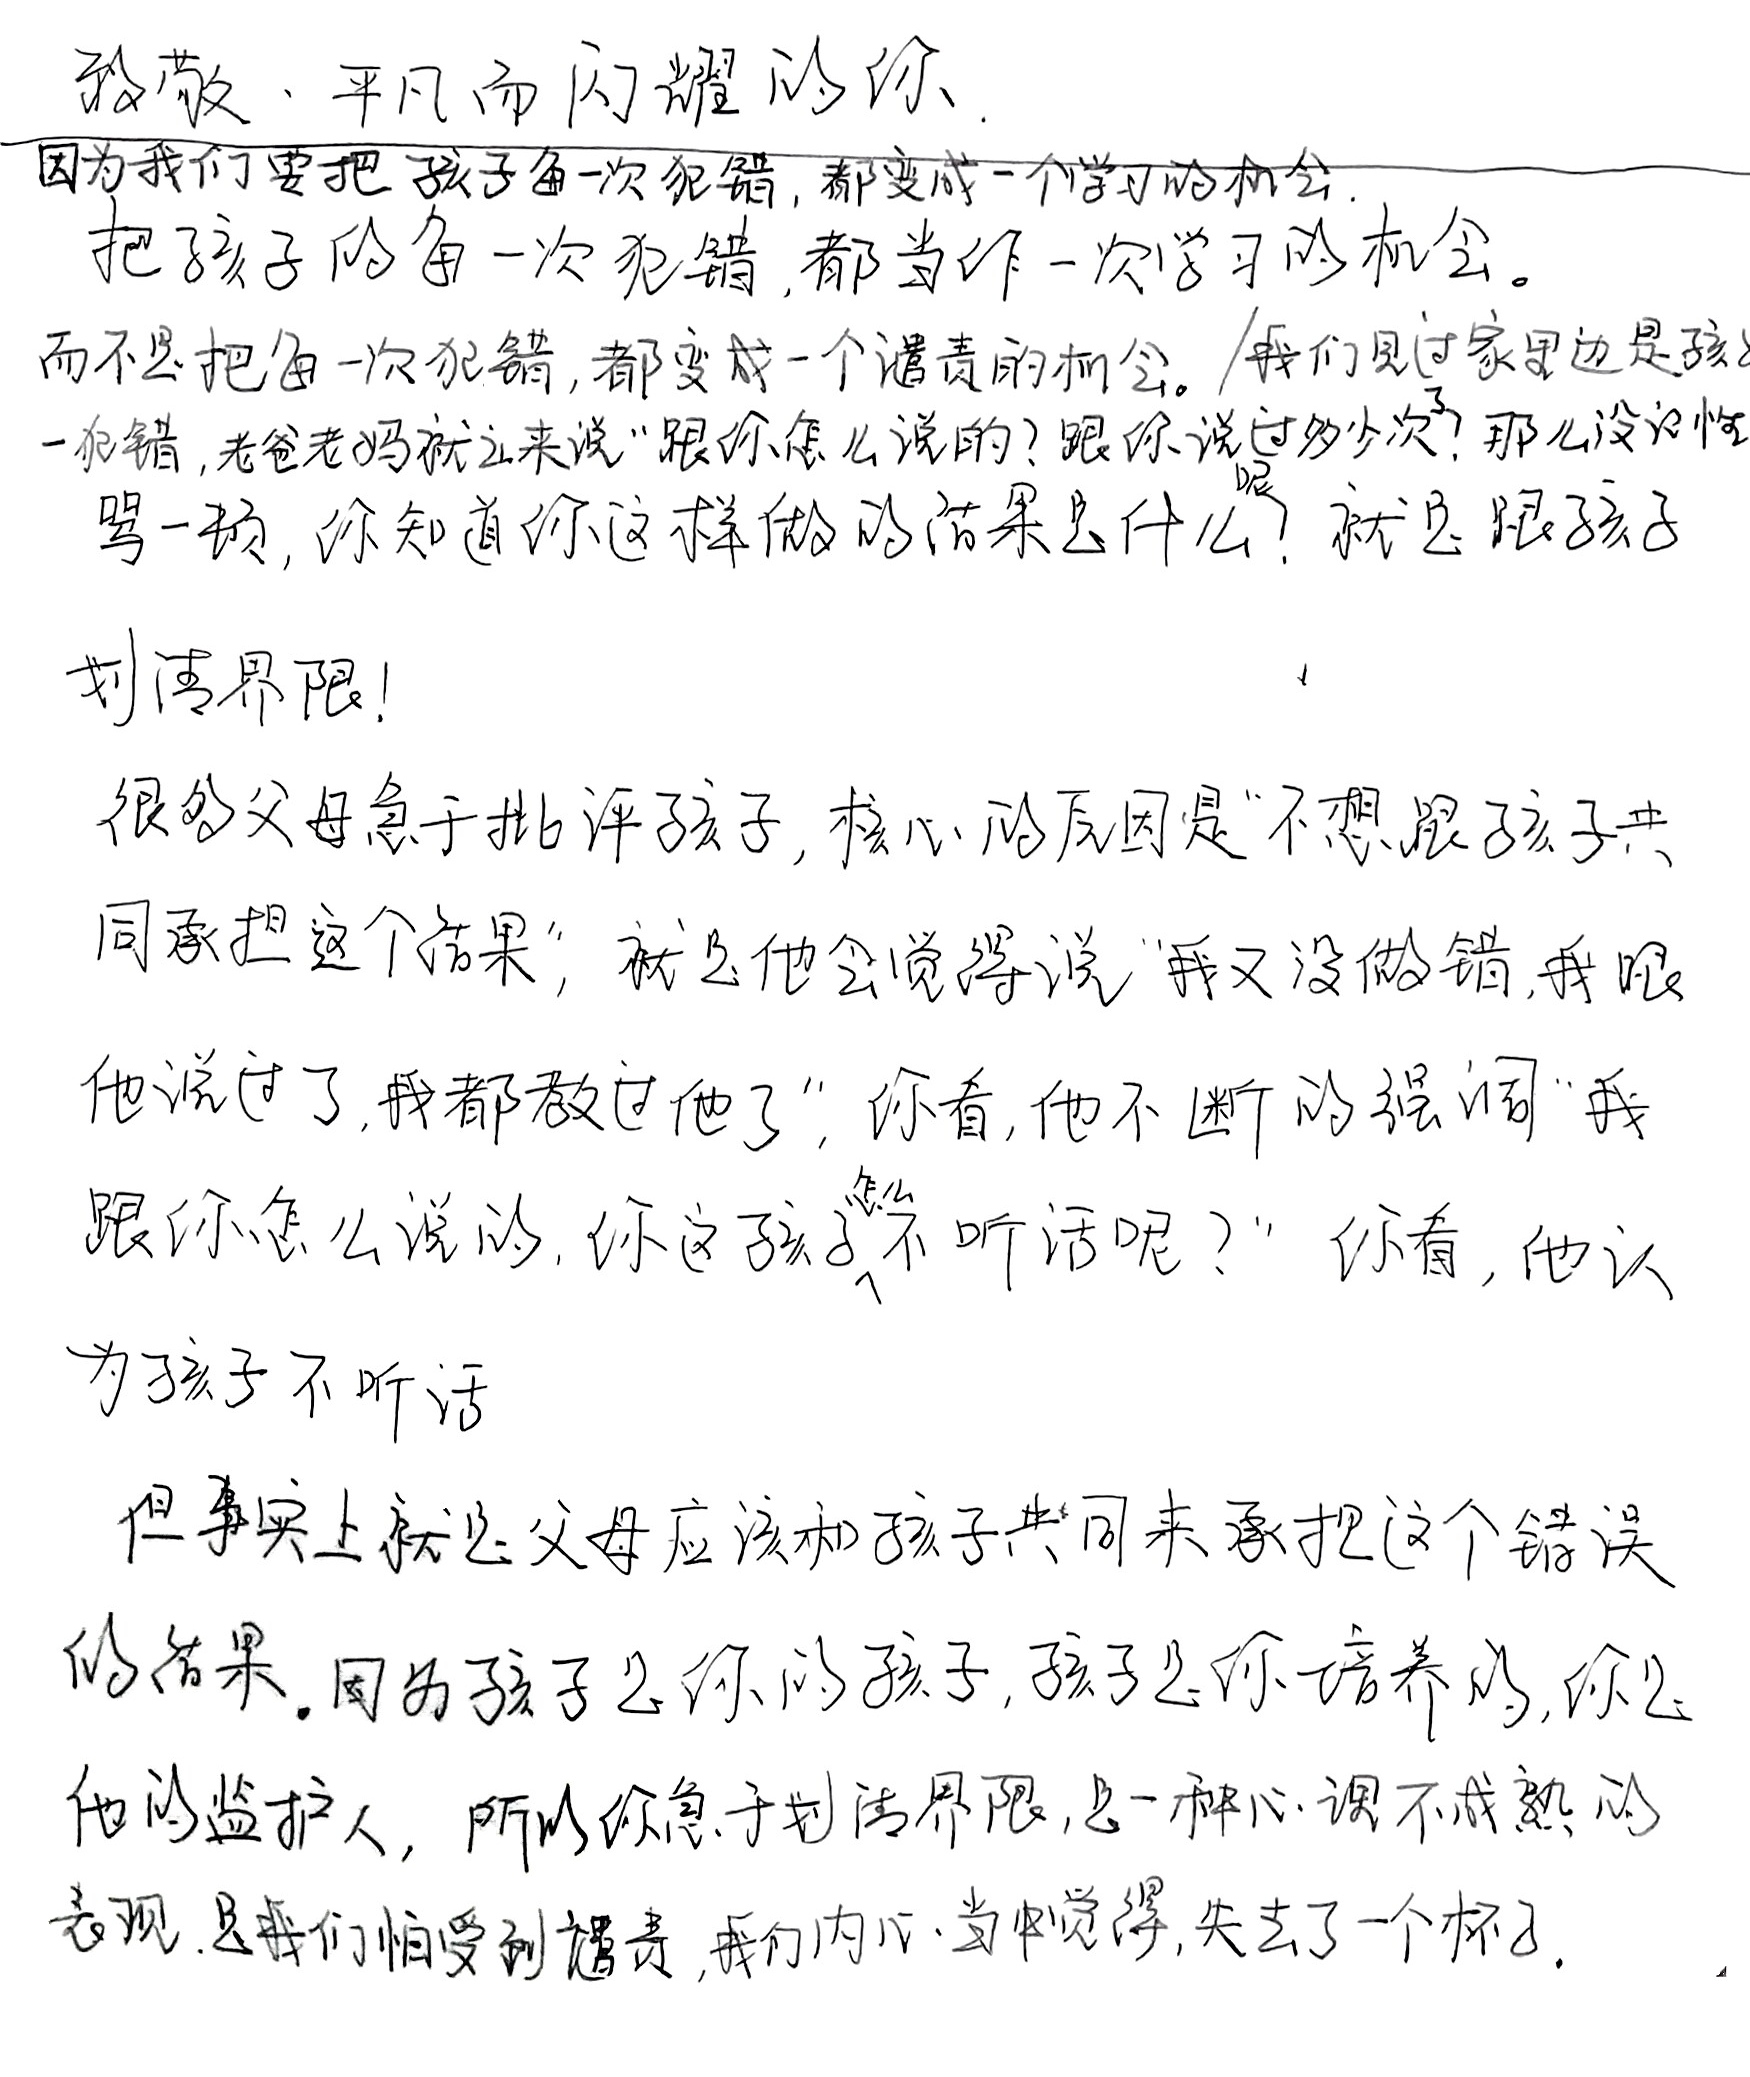 致敬、平凡而闪耀的你.
因为我们要把孩子每一次犯错,都变成一个学习的机会.
把孩子的每一次犯错,都当作一次学习的机会。
而不是把每一次犯错,都变成一个谴责的机会。/我们见过家里边是孩子
一犯错,老爸老妈就立来说“跟你怎么说的?跟你说过多少次了?那么没记性
骂一顿,你知道你这样做的结果是什么呢?就是跟孩子
划清界限!
很多父母急于批评孩子,核心的原因是“不想跟孩子共
同承担这个结果”,就是他会觉得说“我又没做错,我跟
他说过了,我都教过他了”,你看,他不断的强调“我
跟你怎么说的,你这孩子怎么不听话呢?”你看,他认
为孩子不听话
但事实上就是父母应该和孩子共同来承担这个错误
的结果.因为孩子是你的孩子,孩子是你培养的,你是
他的监护人,所以你急于划清界限,是一种心理不成熟的
表现.是我们怕受到谴责,我们内心当中觉得,失去了一个杯子.